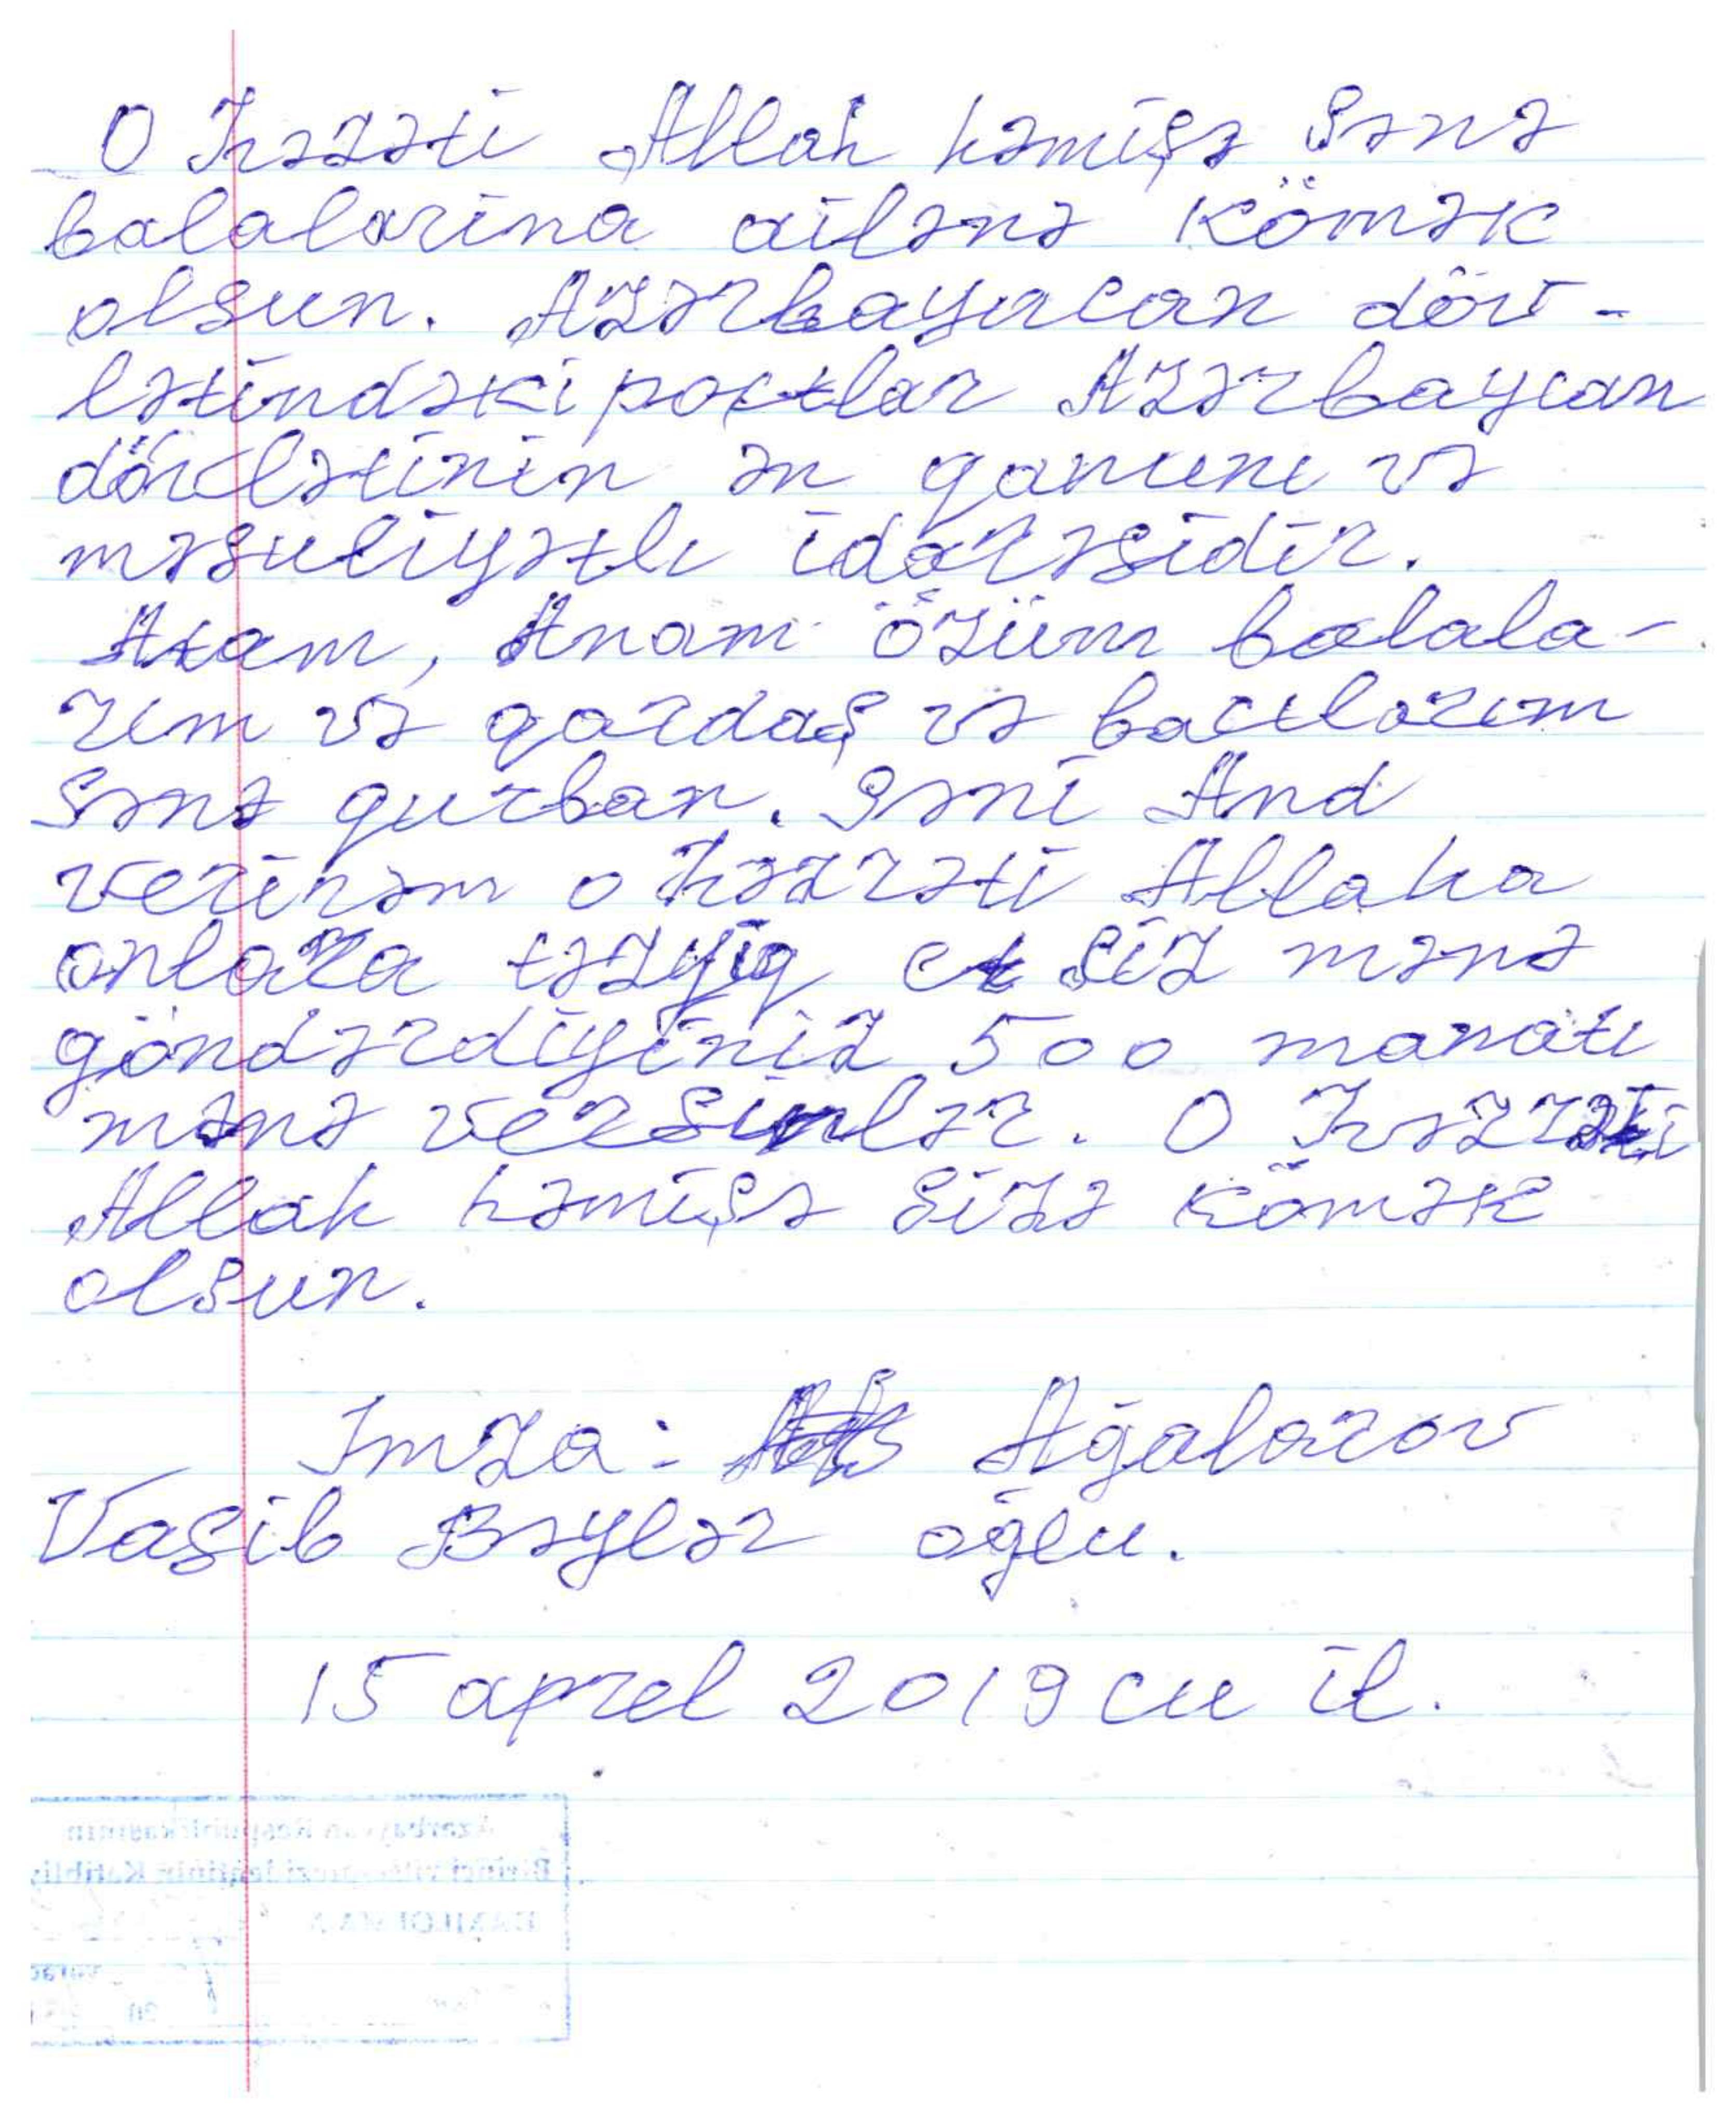 O Həzəti Allah həmişə Sənə
balalarına ailənə Kömək
olsun. Azərbaycan döv-
lətindəki poçtlar Azərbaycan
dövlətinin ən qanunı və
məsuliyətlı idarəsidir.
Atam, Anam özüm balala-
rım və qardaş və bacılarım
Sənə qurban. Səni And
verirəm o həzrəti Allaha
onlara təzyiq et Siz mənə
göndərdiyiniz 500 manatı
mənə versinlər. O Həzrəti
Allah həmişə Sizə Kömək
olsun.
Imza: Ağalarov
Vasib Bəylər oğlu.
15 aprel 2019 cu il.
Azərbaycan Respublikasının
Birinci vitse-prezidentinin Katibliyi
DAXİL OLMA
vərəq
20